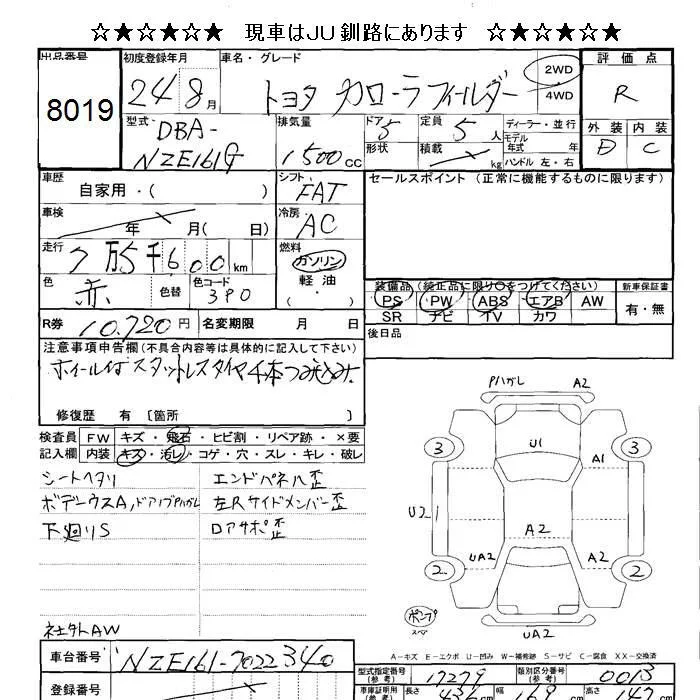 ☆★☆★☆★ 現車はJU釧路にあります ☆★☆★☆★
出品番号 初度登録年月 車名・グレード 評価点
8019 24 8月 トヨタ カローラフィールダー 2WD 4WD R
型式 DBA-NZE161G 排気量 1500cc ドア 5 形状 定員 5人 積載 kg ディーラー・並行 モデル年式 年 ハンドル 左・右 外装 D 内装 C
車歴 自家用・( ) シフト FAT セールスポイント (正常に機能するものに限ります)
車検 年 月(日) 冷房 AC
走行 7万5千600km 燃料 ガソリン 軽油・
色 赤 色替 色コード 3P0
装備品(純正品に限り○をつけてください) 新車保証書
PS PW ABS エアB AW 有・無
SR ナビ TV カワ
R券 10,720円 名変期限 月 日 後日品
注意事項申告欄(不具合内容等は具体的に記入して下さい)
ホイール付スタットレスタイヤ4本つみ込み.
修復歴 有〔箇所 〕
検査員記入欄 FW キズ・飛石・ヒビ割・リペア跡・×要
内装 キズ・汚レ・コゲ・穴・スレ・キレ・破レ
シートヘタリ エンドパネル歪
ボデーウスA,ドアノブPハガレ 左Rサイドメンバー歪
下廻りS ロアサポ歪
社外AW
Pハガレ A2
3 U1 3
A1
U21
A2
UA2 A2
2 2
ポンプ
スペア
UA2
A-キズ E-エクボ U-凹み W-補修跡 S-サビ C-腐食 XX-交換済
車台番号 NZE161-7022340 型式指定番号 17279 類別区分番号 0013
登録番号 車庫証明用(参考) 長さ 436cm 幅 169cm 高さ